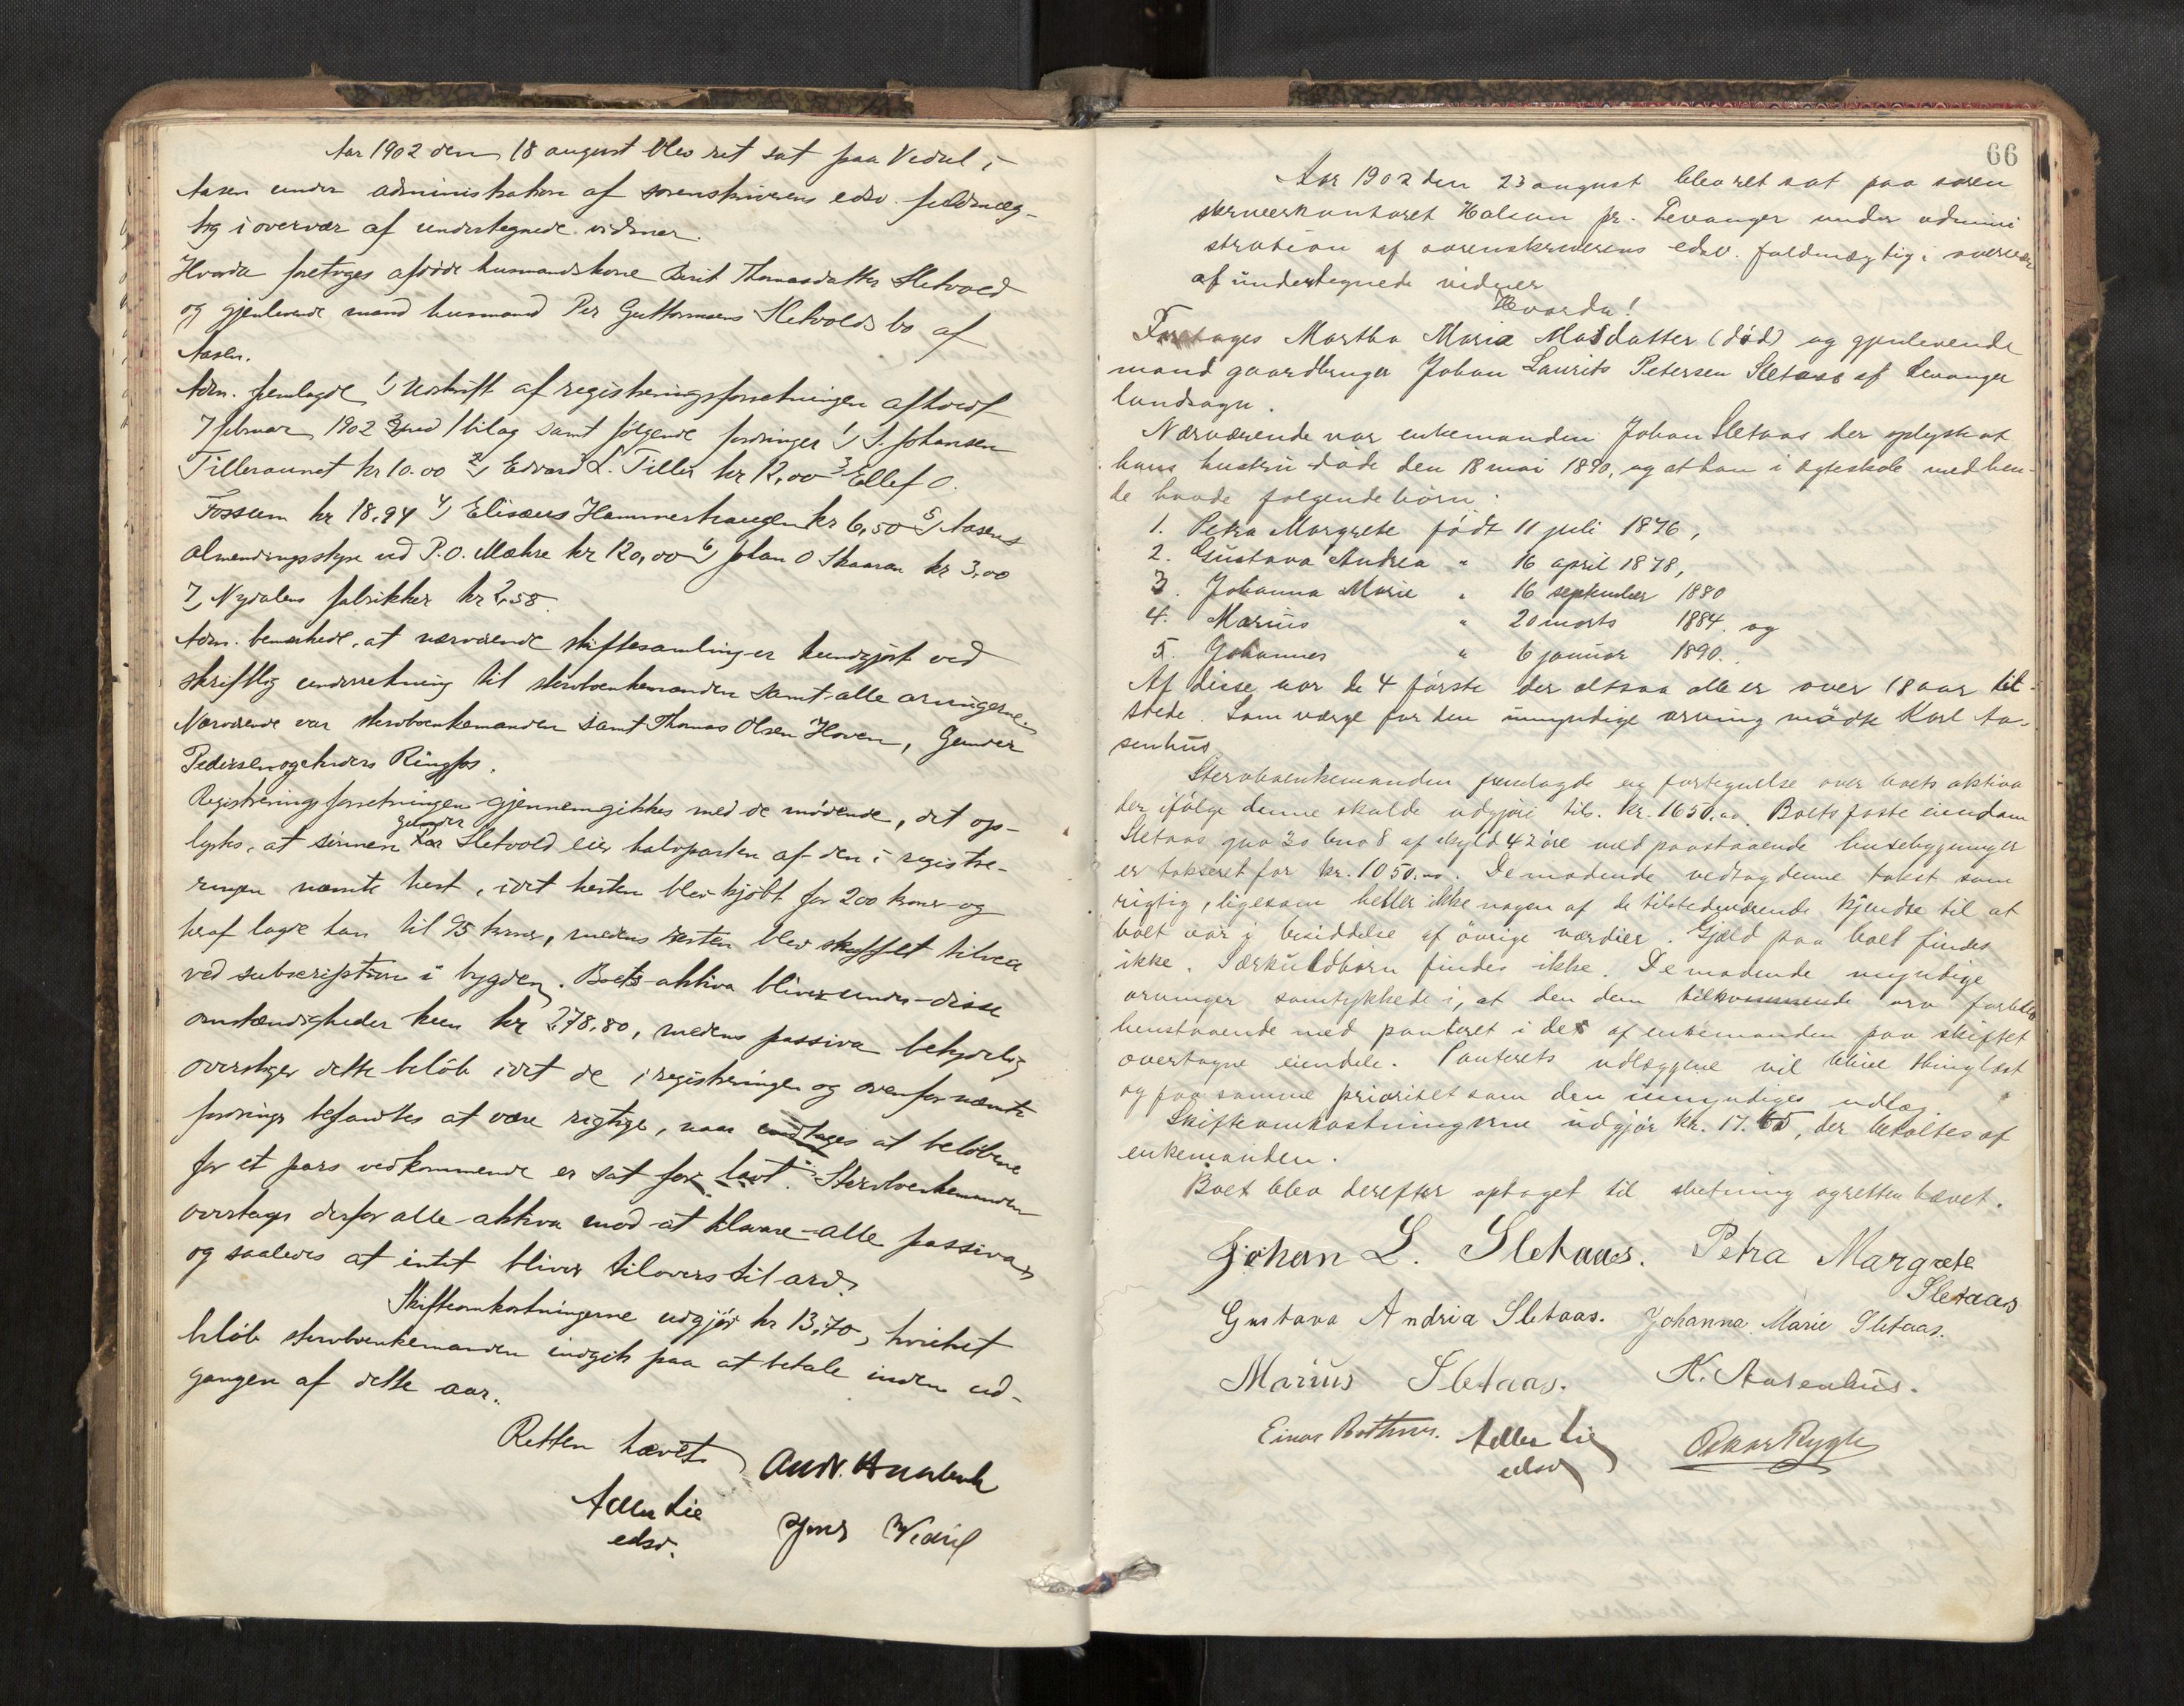 Aar 1902 den 18 august blev ret sat paa Vedul i
Aasen under administration af sorenskriverens edsv. fuldmæg-
tig i overvær af undertegnede vidner.
Hvorda foretoges afdøde husmandskone Berit Thomasdatter Sletvold
og gjenlevende mand husmand Per Guttormsens Sletvolds bo af
Aasen.
Adm. fremlagde 1) Udskrift af registreringsforretningen afholdt
7 februar 1902 med 1 bilag samt følgende fordringer 1) J. Johansen
Tilleraunet kr 10.00 2) Edvard L. Tiller kr 12,00 3) Ellef O.
Fossum kr 18,94 4) Elisæus Hammerhaugen kr 6,50 5) Aasens
almendingsstyre ved P.O. Mæhre kr 120,00 6) Johan O Skaaran kr 3,00
7) Nydalens fabrikker kr 2,58.
Adm. bemærkede, at nærværende skiftesamling er kundgjort ved
skriftlig underretning til stervboenkemanden samt alle arvingerne.
Nærværende var stervboenkemanden samt Thomas Olsen Hoven, Gunder
Pedersen og Anders Ringfos.
Registreringsforretningen gjennemgikkes med de mødende, det op-
lystes, at sønnen Gunder Sletvold eier halvparten af den i registre-
ringen nævnte hest, idet hesten blev kjøbt for 200 kroner og
heraf lagde han til 95 kroner, medens resten blev skaffet tilveie
ved subscription i bygden. Boets aktiva bliver under disse
omstændigheder kun kr 278,80, medens passiva betydelig
overstiger dette beløb idet de i registreringen og ovenfor nævnte
fordringer befandtes at være rigtige, naar undtages at beløbene
for et pars vedkommende er sat for lavt. Stervboenkemanden
overtager derfor alle aktiva mod at tilsvare alle passiva
og saaledes at intet bliver tilovers til arv.
Skifteomkostningerne udgjør kr 13,70, hvilket
beløb stervboenkemanden indgik paa at betale inden ud-
gangen af dette aar.
Retten hævet
Adler Lie
edsv.
Jens Vedul
66
Aar 1902 den 23 august blev ret sat paa soren
skriverkontoret Halsan pr. Levanger under admini
stration af sorenskriverens edsv. fuldmægtig i overvær
af undertegnede vidner
Hvorda!
Foretages Martha Maria Matsdatter (død) og gjenlevende
mand gaardbruger Johan Laurits Petersen Sletaas af Levanger
landsogn.
Nærværende var enkemanden Johan Sletaas der oplyste at
hans hustru døde den 18 mai 1890, og at han i ægteskab med hen-
de havde følgende børn:
1. Petra Margrete født 11 juli 1876,
2. Gustava Andrea " 16 april 1878,
3. Johanna Marie " 16 september 1880
4. Marius " 20 marts 1884. og
5. Johannes " 6 januar 1890.
Af disse var de 4 første der altsaa alle er over 18 aar til-
stede. Som værge for den umyndige arving mødte Karl Aa-
senhus
Stervboenkemanden fremlagde en fortegnelse over boets aktiva
der ifølge denne skulde udgjøre tils. kr. 1650.00. Boets faste eiendom
Sletaas gno 30 bno 8 af skyld 42 øre med paastaaende husebygninger
er takseret for kr. 1050.00. De mødende vedtog denne takst som
rigtig, ligesom heller ikke nogen af de tilstedeværende kjendte til at
boet var i besiddelse af øvrige værdier. Gjæld paa boet findes
ikke. Særkuldbørn findes ikke. De mødende myndige
arvinger samtykkede i, at den dem tilkommende arv forblev
henstaaende med panteret i det af enkemanden paa skiftet
overtagne eiendele. Panterets udlæggene vil blive thinglæst
og faa samme prioritet som den umyndiges udlæg.
Skifteomkostningerne udgjør kr. 17.65, der betaltes af
enkemanden.
Boet blev derefter optaget til slutning og retten hævet.
Johan L. Sletaas. Petra Margrete
Sletaas
Gustava Andria Sletaas. Johanna Marie Sletaas.
Marius Sletaas. K. Aasenhus.
Einar Adler Lie Oskar Rygh
edsv